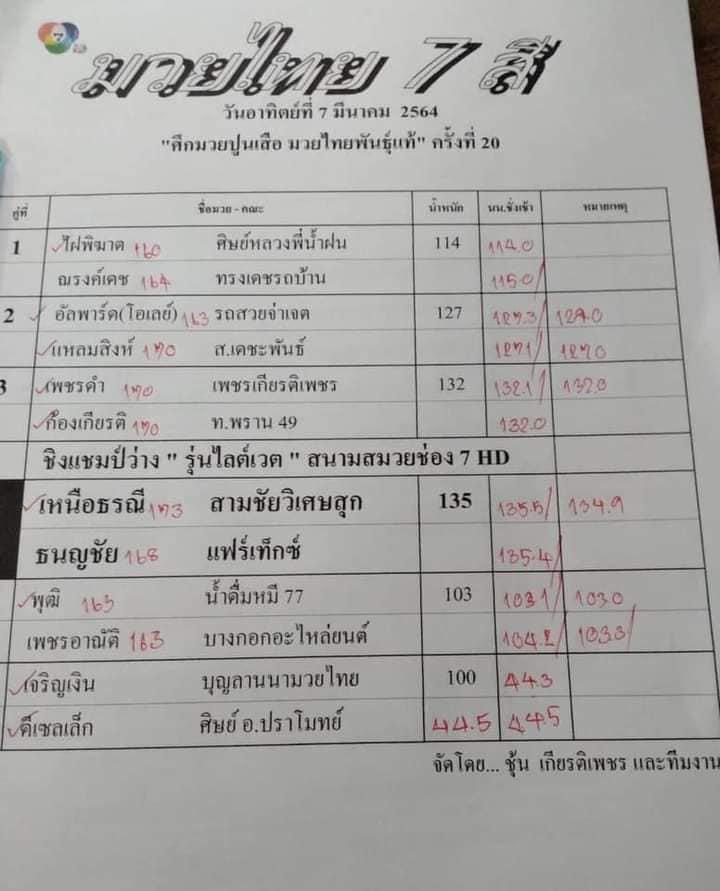 7
มวยไทย 7 สี
วันอาทิตย์ที่ 7 มีนาคม 2564
"ศึกมวยปูนเสือ มวยไทยพันธุ์แท้" ครั้งที่ 20
คู่ที่ ชื่อมวย - คณะ น้ำหนัก นน.ชั่งเช้า หมายเหตุ
1 ไฝพิฆาต 160 ศิษย์หลวงพี่น้ำฝน 114 114.0
ณรงค์เดช 164 ทรงเดชรถบ้าน 115.0/
2 อัลพาร์ด(โอเลย์) 163 รถสวยจ่าเจต 127 127.3/ 127.0
แหลมสิงห์ 170 ส.เดชะพันธ์ 127.1/ 127.0
3 เพชรดำ 170 เพชรเกียรติเพชร 132 132.1/ 132.0
ก้องเกียรติ 170 ท.พราน 49 132.0
ชิงแชมป์ว่าง " รุ่นไลต์เวต " สนามสมวยช่อง 7 HD
เหนือธรณี 173 สามชัยวิเศษสุก 135 135.5/ 134.9
ธนญชัย 168 แฟร์เท็กซ์ 135.4/
พุฒิ 163 น้ำดื่มหมี 77 103 103.1/ 103.0
เพชรอาณัติ 163 บางกอกอะไหล่ยนต์ 104.2/ 103.3/
เจริญเงิน บุญลานนามวยไทย 100 44.3
ดีเซลเล็ก ศิษย์ อ.ปราโมทย์ 44.5 44.5
จัดโดย... ชุ้น เกียรติเพชร และทีมงาน